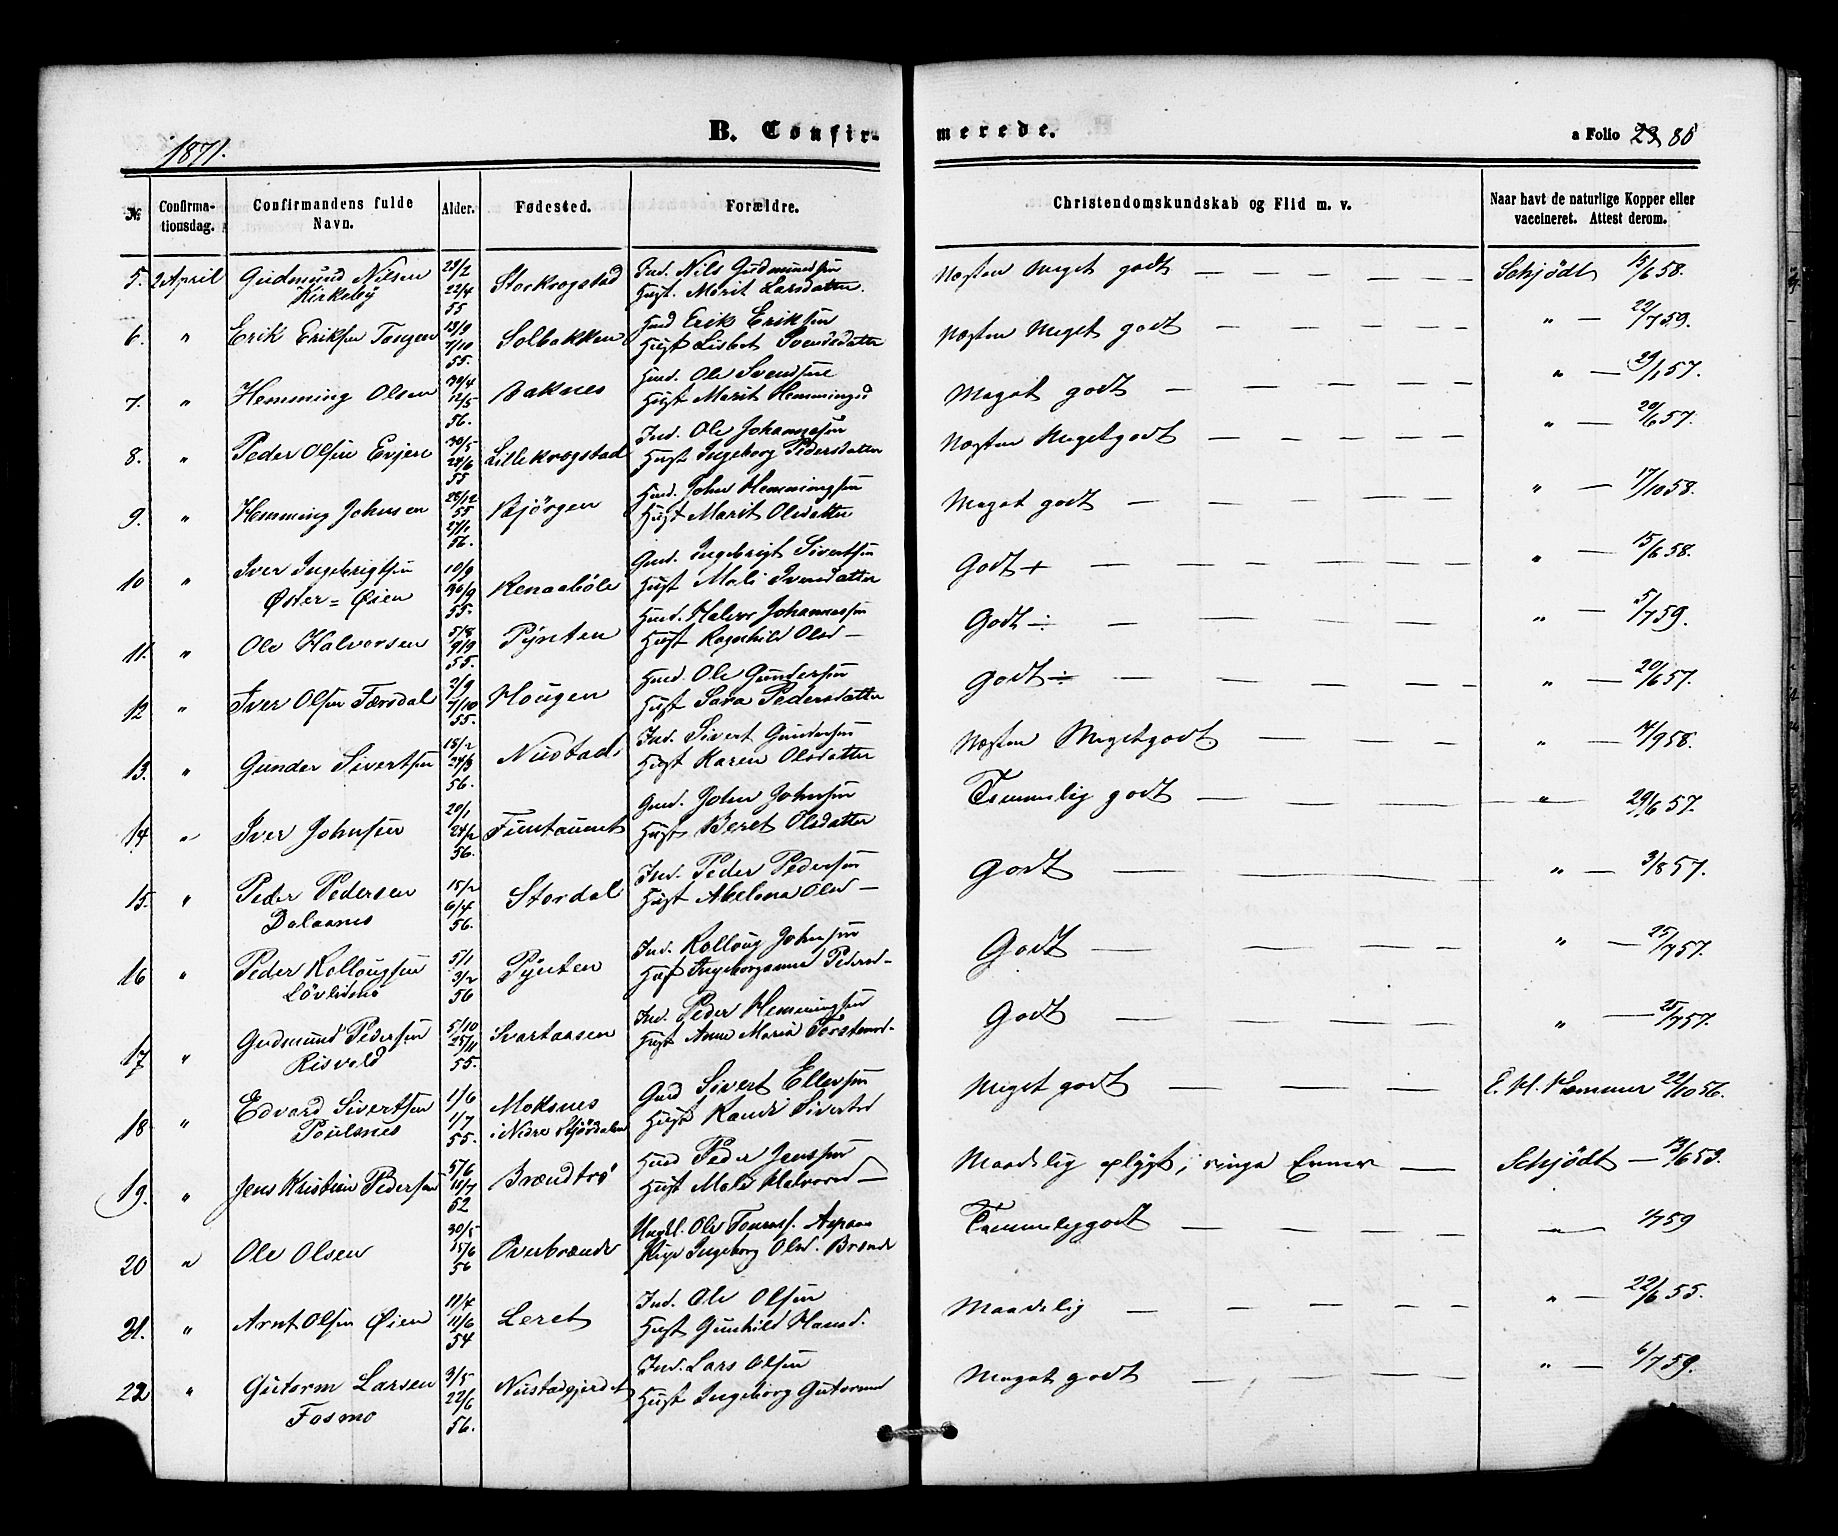 1871.
B. Confir-
merede.
a Folio 23 85
№
Confirma-
tionsdag.
Confirmandens fulde
Navn.
Alder.
Fødested.
Forældre.
Christendomskundskab og Flid m. v.
Naar havt de naturlige Kopper eller
vaccineret. Attest derom.
5. 2 April Gudmund Nilsen Kirkeby 22/4 55 Storkrogstad Ind. Nils Gudmundsen Hust. Marit Larsdatter. Næsten Meget godt — Schjödt 15/6 58.
6. " Erik Eriksen Tangen 13/9 7/10 55. Solbakken Hmd Erik Eriksen Hust Lisbet Svendsdatter Næsten Meget godt — " 22/7 59.
7. " Hemming Olsen 30/4 12/5 56. Baknes Hmd. Ole Svendsen Hust Marit Hemmingsd Meget godt — " — 29/6 57.
8. " Peder Olsen Evjen 30/5 24/6 55 Lillekrogstad Ind. Ole Johannesen Hust. Ingeborg Pedersdatter Næsten Megetgodt — " — 20/6 57.
9. " Hemming Johnsen 28/12 55 27/1 56. Bjørgen Hmd. John Hemmingsen Hust Marit Olsdatter Meget godt — " — 17/10 58.
10 " Iver Ingebrigtsen Øster=Øien 10/9 30/9 55. Renaaböle Gmd. Ingebrigt Sivertsen Hust Mali Iversdatter Godt + — " — 15/6 58.
11. " Ole Halvorsen 5/8 9/9 55. Pynten Hmd. Halvor Johannessen Hust Ragnhild Olsd — Godt ÷ — " — 5/7 59.
12 " Iver Olsen Færsdal 2/9 7/10 55. Hougen Hmd. Ole Gundersen Hust Sara Pedersdatter Godt ÷ — " — 20/6 57.
13. " Gunder Sivertsen 15/2 24/3 56. Nustad Ind. Sivert Gundersen Hust Karen Olsdatter Næsten Megetgodt — " — 7/9 58.
14 " Iver Johnsen 20/1 24/2 56. Funtaunet Gmd. John Johnsen Hust Beret Olsdatter Temmelig godt — " — 29/6 57.
15. " Peder Pedersen Dalaanes 15/2 6/4 56. Stordal Ind. Peder Pedersen Hust Abelona Olsd — Godt — " — 3/8 57.
16 " Peder Kollougsen Lövlimo 5/1 3/2 56 Pynten Ind. Kolloug Johnsen Hust Ingeborganna Pedersd — Godt — " — 25/7 57.
17 " Gudmund Pedersen Risvold 5/10 25/11 55. Svartaasen Ind. Peder Hemmingsen Hust Anne Maria Torstensd — Godt — " — 25/7 57.
18 " Edvard Sivertsen Poulsnes 1/6 1/7 55. Moksnes i Nedre Stjørdalen Gmd Sivert Ellevsen Hust Randi Sivertsd Meget godt — E. H. Hammer 22/10 56.
19. " Jens Kristian Pedersen 5/6 11/7 52 Brændtrø Hmd Peder Jenssen Hust Mali Halvorsd — Maadelig oplyst, ringe Evner — Schjödt — 13/6 53.
20 " Ole Olsen 30/5 15/6 56 Overbrænde Ungkl. Ole Tomass. Aspaas Pige Ingeborg Olsd. Brænde Temmeliggodt — " — 1/7 59
21. " Arnt Olsen Øien 11/4 11/6 54 Leret Ind. Ole Olsen Hust Gunhild Hansd. Maadelig — " — 22/6 55.
22 " Gutorm Larsen Fosmo 3/5 22/6 56. Nustadgjerdet Ind. Lars Olsen Hust Ingeborg Gutormsd Meget godt — " — 6/7 59.